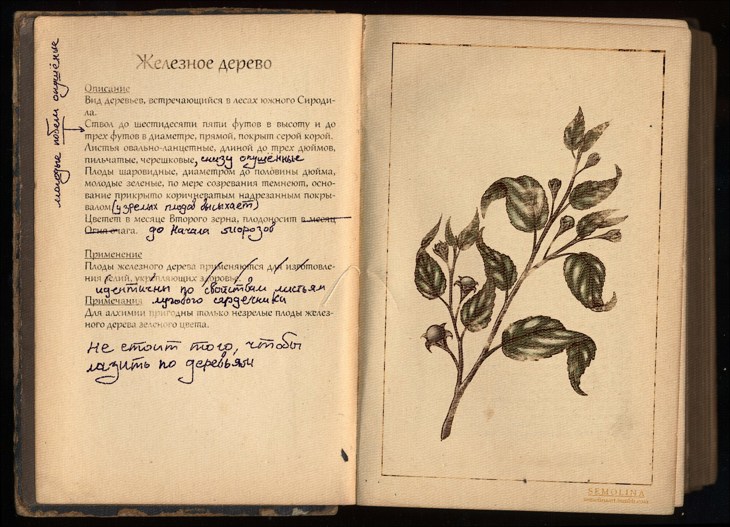 Железное дерево
молодые побеги опушённые
Описание
Вид деревьев, встречающийся в лесах южного Сироди-
ла.
Ствол до шестидесяти пяти футов в высоту и до
трех футов в диаметре, прямой, покрыт серой корой.
Листья овально-ланцетные, длиной до трех дюймов,
пильчатые, черешковые, снизу опушённые
Плоды шаровидные, диаметром до половины дюйма,
молодые зеленые, по мере созревания темнеют, осно-
вание прикрыто коричневатым надрезанным покры-
валом (у зрелых плодов высыхает)
Цветет в месяце Второго зерна, плодоносит в месяц
Огня очага. до начала морозов
Применение
Плоды железного дерева применяются для изготовле-
ния зелий, укрепляющих здоровье.
идентичны по свойствам листьям
Примечания лугового сердечника
Для алхимии пригодны только незрелые плоды желез-
ного дерева зеленого цвета.
не стоит того, чтобы
лазить по деревьям
SEMOLINA